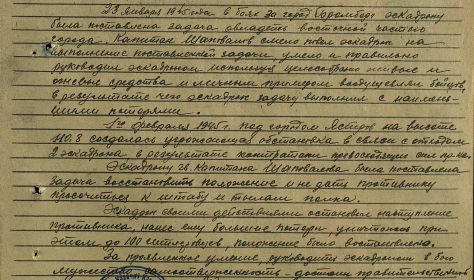 23 января 1945 года в боях за город Бромберг эскадрону
была поставлена задача овладеть восточной частью
города. Капитан Шаповалов смело повел эскадрон на
выполнение поставленной задачи, умело и правильно
руководил эскадроном используя целесообразно живые и
огневые средства и личным примером воодушевлял бойцов,
в результате чего эскадрон задачу выполнил с наимень-
шими потерями.
1го февраля 1945 г. над городом Ястров на высоте
110,8 создалась угрожающая обстановка в связи с отходом
2 эскадрона в результате контратаки превосходящих сил пр-ка.
Эскадрону гв. капитана Шаповалова была поставлена
задача восстановить положение и не дать противнику
просочиться к штабу и тылам полка.
Эскадрон своими действиями остановил наступление
противника, нанес ему большие потери, уничтожив при
этом до 100 гитлеровцев, положение было восстановлено.
За проявленное умение, руководить эскадроном в бою
мужество самоотверженность достоин правительственной